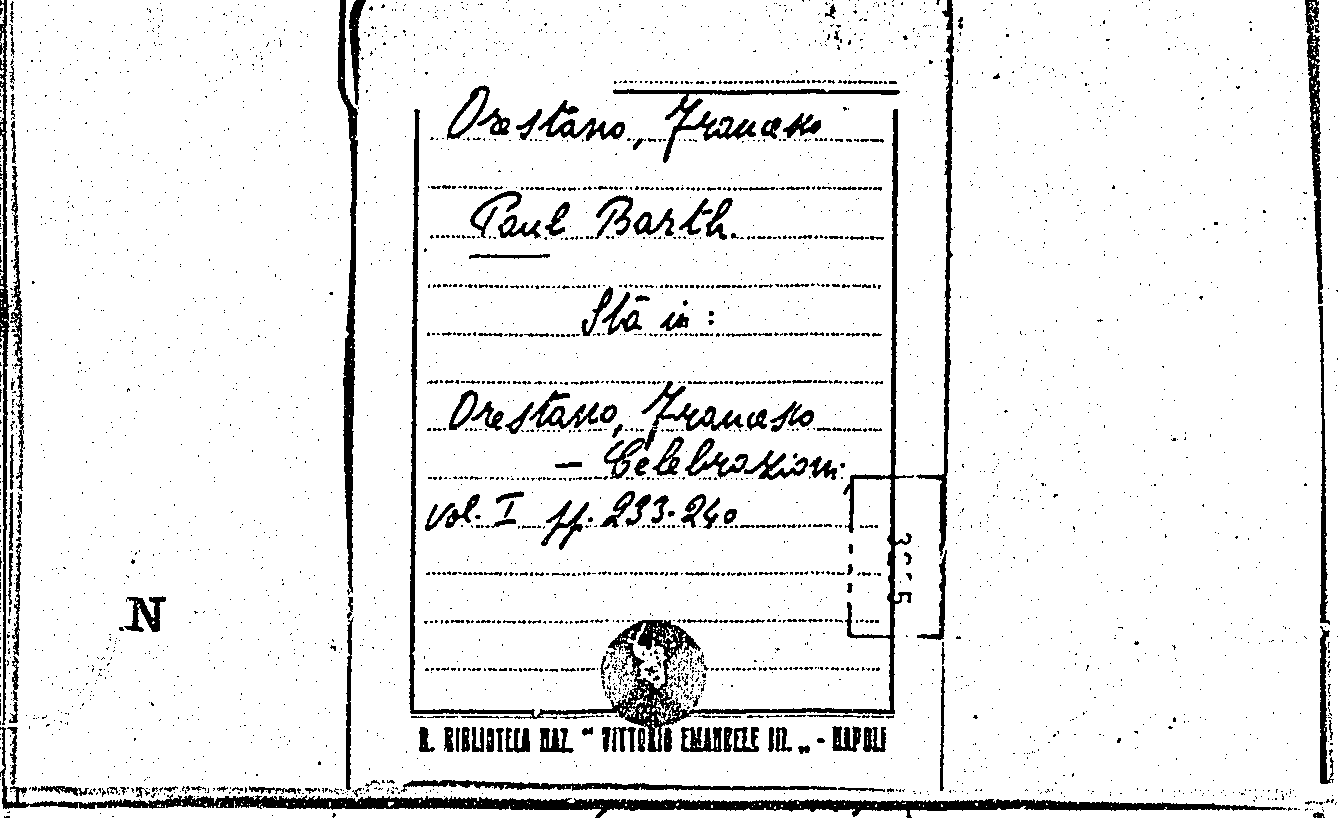 Orestano, Francesco
Paul Barth.
Stà in:
Orestano, Francesco
- Celebrazioni.
vol. I pp. 233-240
N
R. BIBLIOTECA NAZ. “ VITTORIO EMANUELE III. „ - NAPOLI